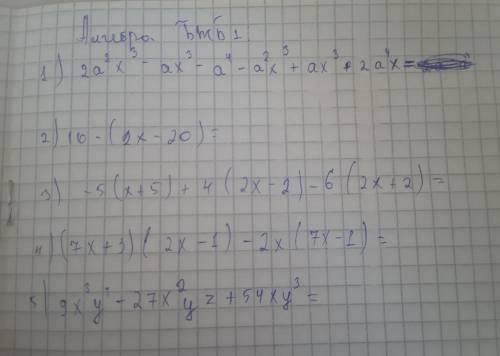 Алгебра БЖБ 1.
1) 2a²x³ - ax³ - a⁴ - a²x³ + ax³ + 2a⁴x =
2) 10 - (2x - 20) =
3) -5(x+5) + 4(2x-2) - 6(2x+2) =
4) (7x+3)(2x-1) - 2x(7x-1) =
5) 9x³y² - 27x²yz + 54xy³ =